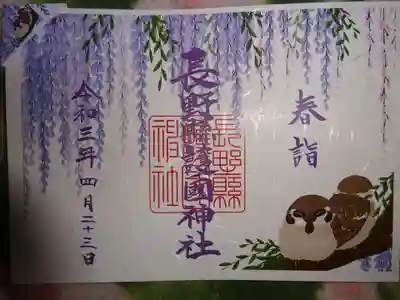 春詣
長野縣護國神社
長野縣
護國神社
令和三年四月二十三日